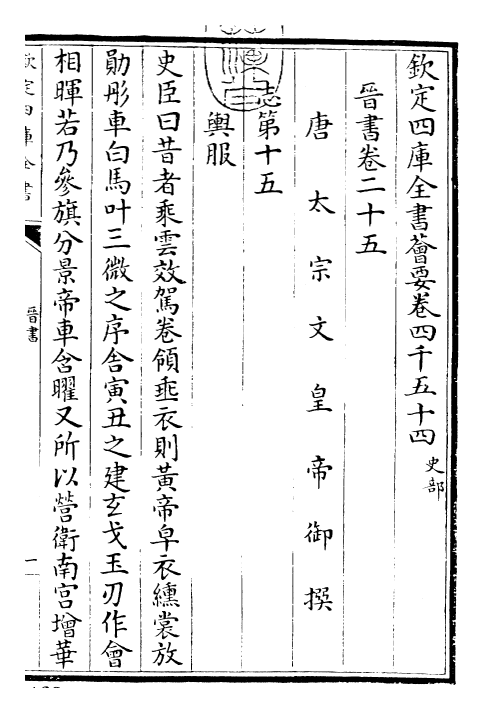 欽定四庫全書薈要卷四千五十四 史部
晉書卷二十五
唐太宗文皇帝御撰
志第十五
輿服
史臣曰昔者乘雲效駕卷領垂衣則黃帝皁衣纁裳放
勛彤車白馬叶三微之序舍寅丑之建玄戈玉刃作會
相暉若乃參旗分景帝車含曜又所以營衛南宮增華
欽定四庫全書
晉書
一